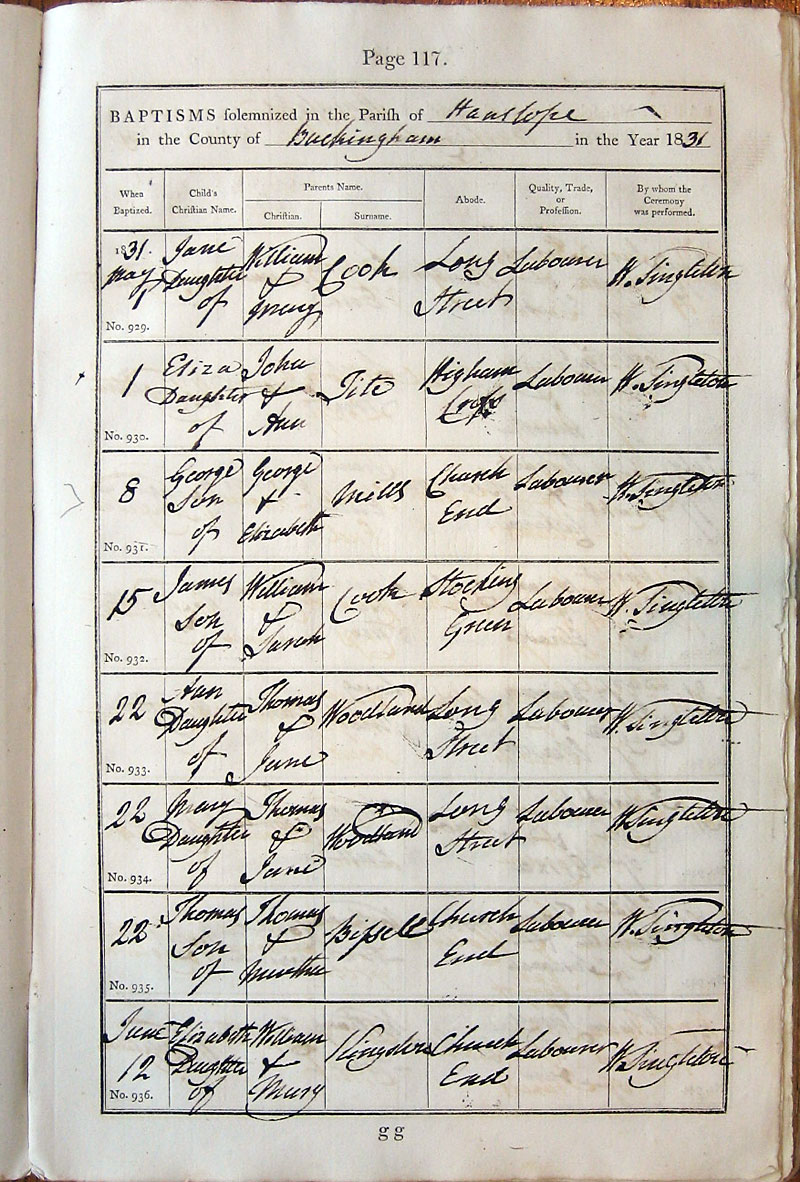 Page 117.
BAPTISMS solemnized in the Parish of Hanslope
in the County of Buckingham in the Year 1831
When Baptized. Child's Christian Name. Parents Name. Abode. Quality, Trade, or Profession. By whom the Ceremony was performed.
Christian. Surname.
1831. Jane William Cook Long Labourer W. Singleton
May Daughter & Street
1 of Mary
No. 929.
1 Eliza John Tite Higham Labourer W. Singleton
Daughter & Cross
of Ann
No. 930.
8 George George Mills Church Labourer W. Singleton
Son & End
of Elizabeth
No. 931.
15 James William Cook Stocking Labourer W. Singleton
Son & Green
of Sarah
No. 932.
22 Ann Thomas Woodland Long Labourer W. Singleton
Daughter & Street
of Jane
No. 933.
22 Mary Thomas Woodland Long Labourer W. Singleton
Daughter & Street
of Jane
No. 934.
22 Thomas Thomas Bissell Church Labourer W. Singleton
Son & End
of Martha
No. 935.
June Elizabeth William Church Labourer W. Singleton
12 Daughter & End
of Mary
No. 936.
g g